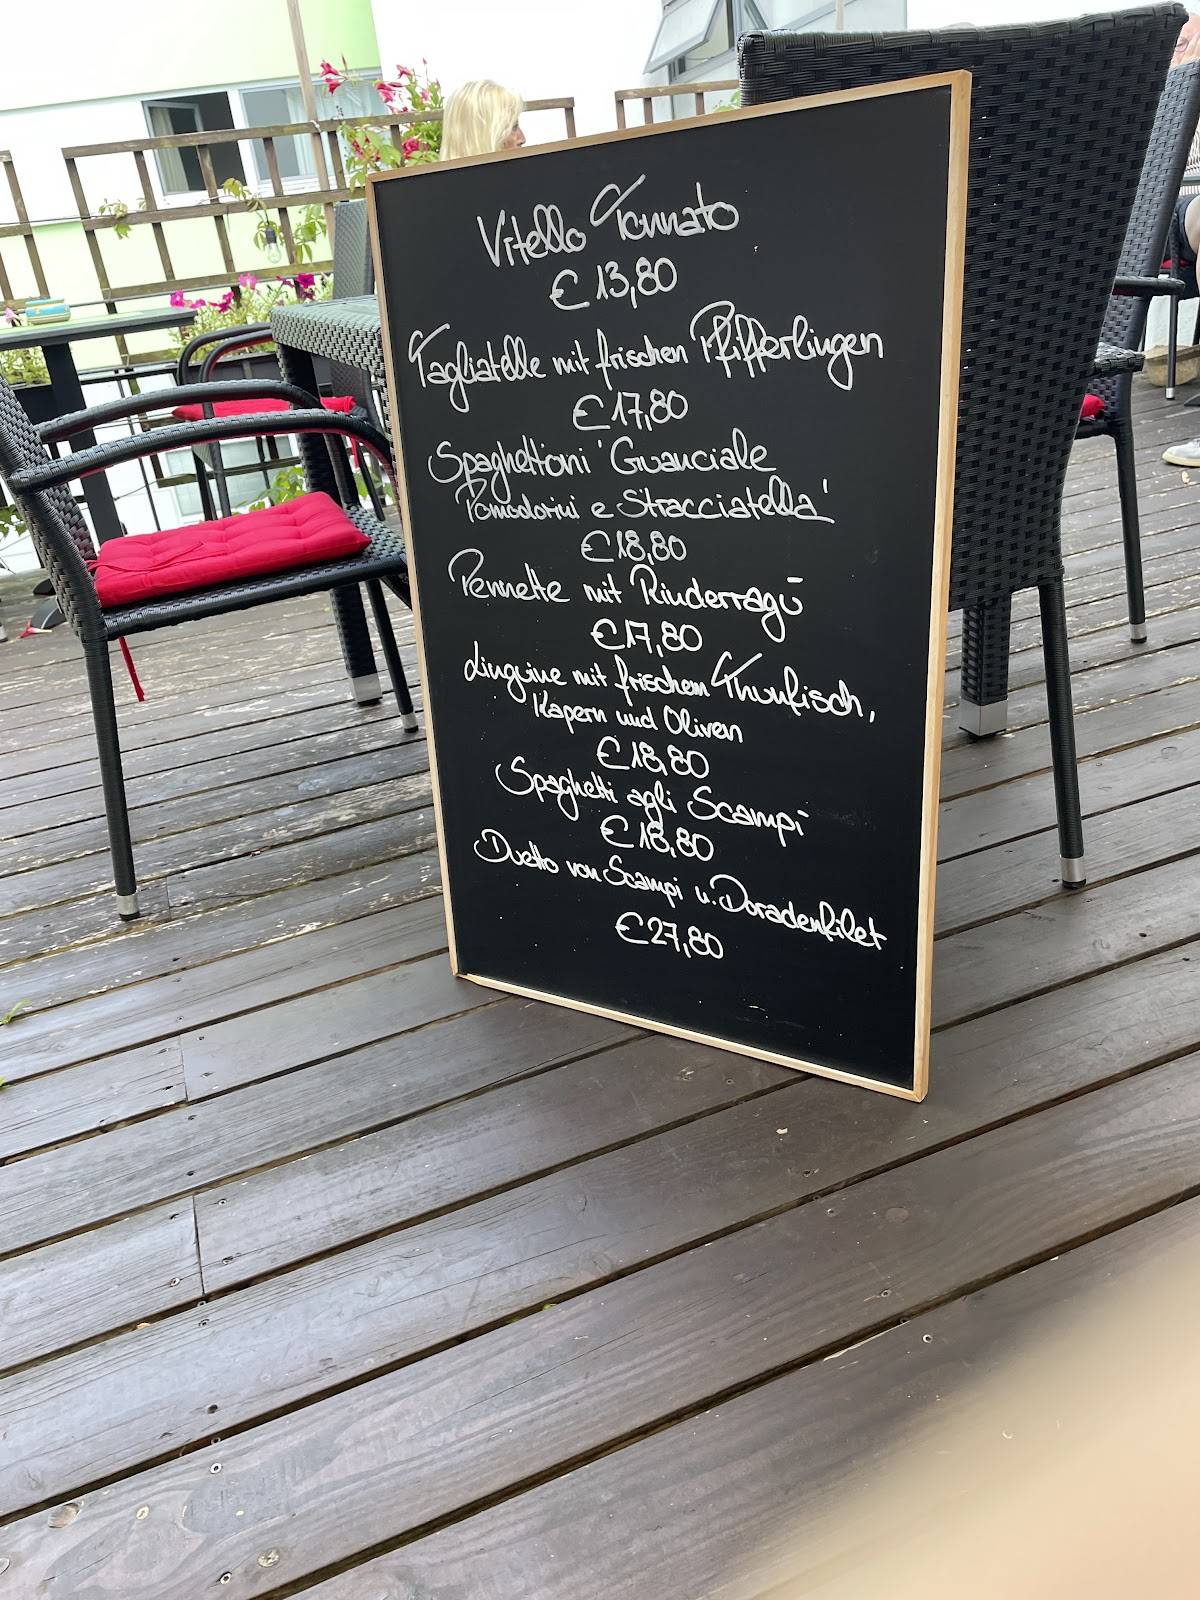 Vitello Tonnato
€ 13,80
Tagliatelle mit frischen Pfifferlingen
€ 17,80
Spaghettoni 'Guanciale
Pomodorini e Stracciatella'
€ 18,80
Pennette mit Rinderragù
€ 17,80
Linguine mit frischem Thunfisch,
Kapern und Oliven
€ 18,80
Spaghetti agli Scampi
€ 18,80
Duetto von Scampi u. Doradenfilet
€ 27,80